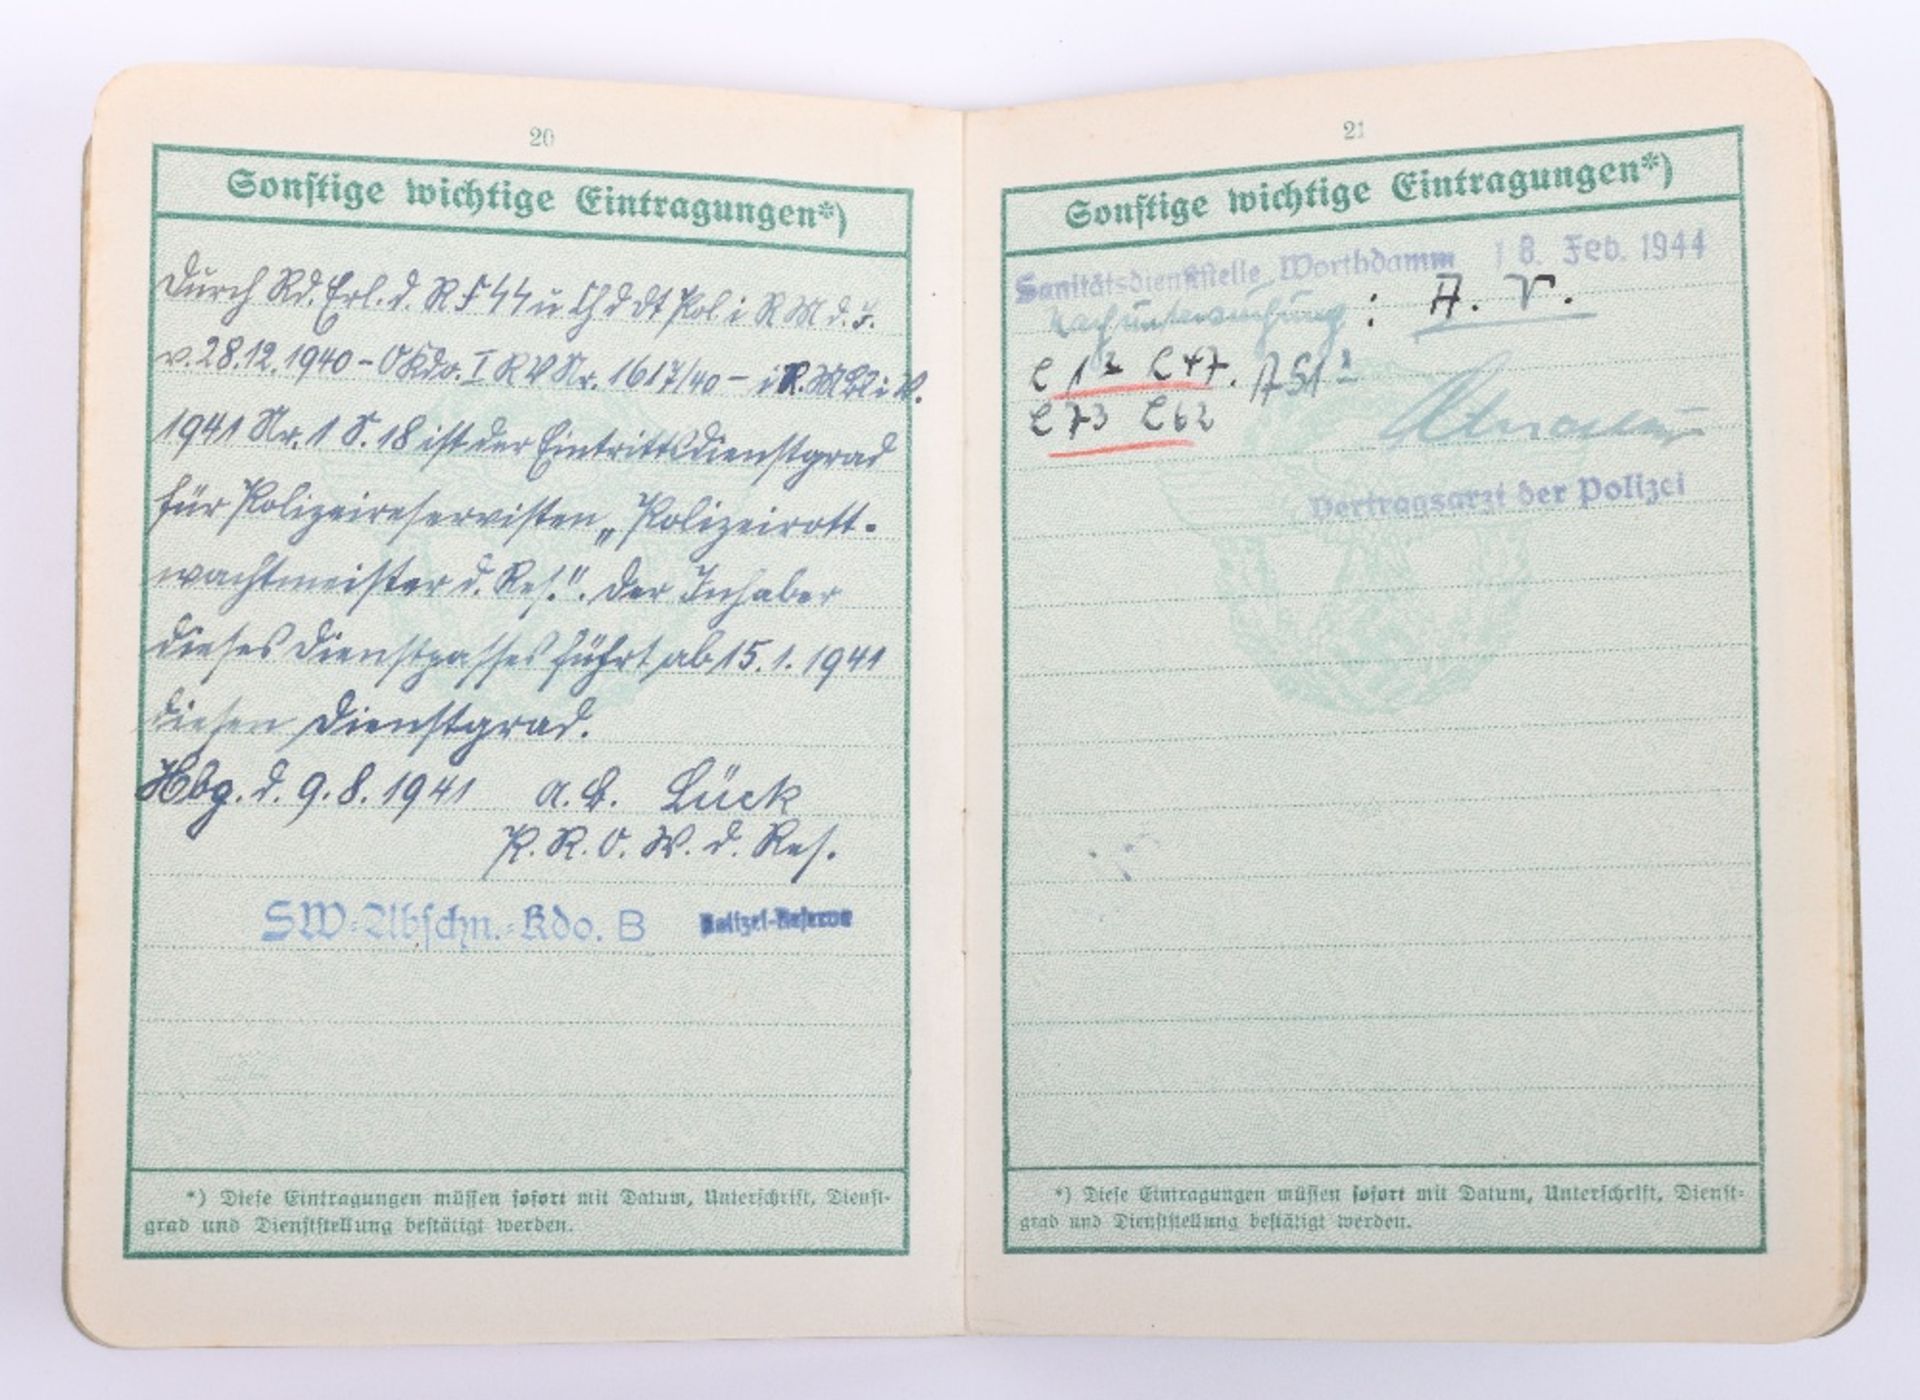 20
Sonstige wichtige Eintragungen*)
Durch Rd. Erl. d. RFSS u Ch d dt Pol i RMd.I.
v. 28.12.1940 – O Kdo. I R V Nr. 1617/40 – i R.MBl i V.
1941 Nr. 1 S. 18 ist der Eintrittsdienstgrad
für Polizeireservisten „Polizeirott-
wachtmeister d. Res.". Der Inhaber
dieses Dienstpasses führt ab 15.1.1941
diesen Dienstgrad.
Hbg. d. 9.8.1941 a.B. Lück
P.R.O.W.d.Res.
SW-Abschn.-Kdo. B Polizei-Reserve
*) Diese Eintragungen müssen sofort mit Datum, Unterschrift, Dienst-
grad und Dienststellung bestätigt werden.
21
Sonstige wichtige Eintragungen*)
Sanitätsdienststelle Worthdamm 18. Feb. 1944
Nachuntersuchung: A. V.
C 47.
C 73 C 62
Vertragsarzt der Polizei
*) Diese Eintragungen müssen sofort mit Datum, Unterschrift, Dienst-
grad und Dienststellung bestätigt werden.